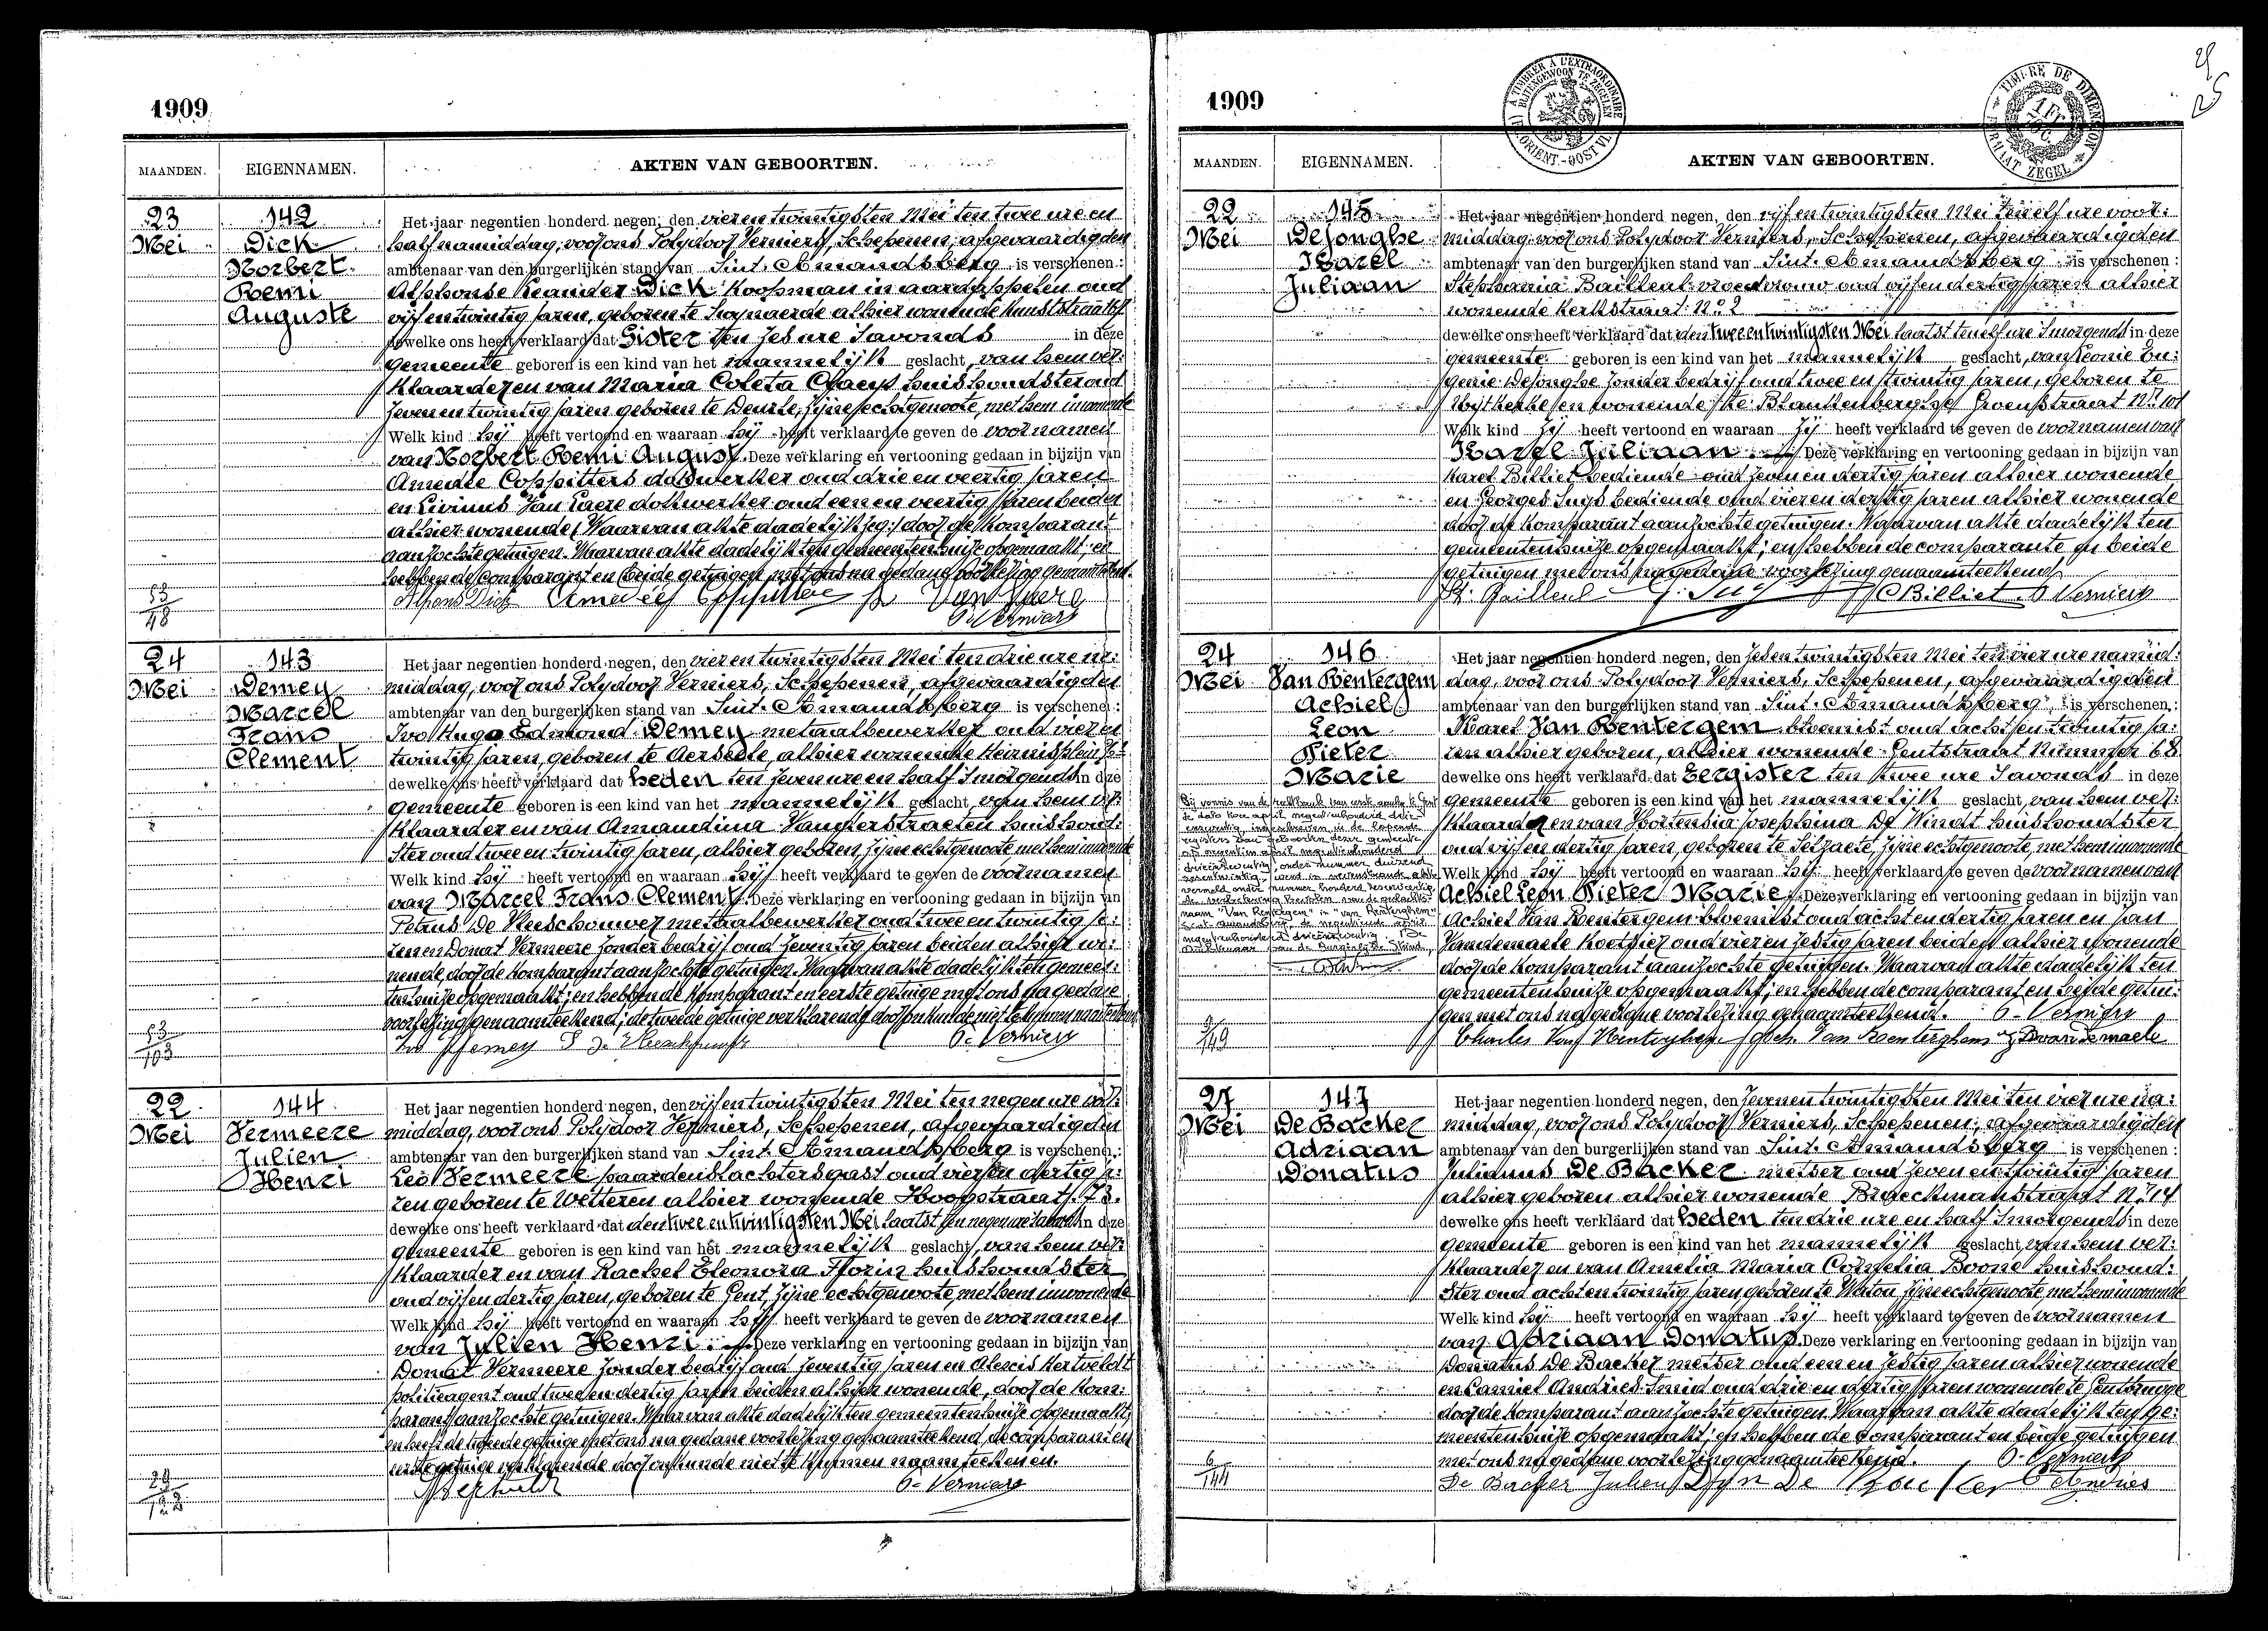 1909
MAANDEN. EIGENNAMEN. AKTEN VAN GEBOORTEN.
23 Mei
142
Dick
Norbert
Remi
Auguste
Het jaar negentien honderd negen, den vier en twintigsten Mei ten twee ure en
half namiddag, voor ons Polydoor Verniers, Schepenen, afgevaardigden
ambtenaar van den burgerlijken stand van Sint. Amandsberg is verschenen :
Alphonse Leander Dick Koopman in aardappelen oud
vijf en twintig jaren, geboren te Swynaerde alhier wonende
dewelke ons heeft verklaard dat Gister ten zes ure Savonds in deze
gemeente geboren is een kind van het mannelijk geslacht, van hem ver:
klaarder en van Maria Coleta Claeys huishoudster oud
zeven en twintig jaren geboren te Deurle, zijne echtgenoote, met hem inwonende
Welk kind hij heeft vertoond en waaraan hij heeft verklaard te geven de voornamen
van Norbert Remi August. Deze verklaring en vertooning gedaan in bijzijn van
Amedée Coppitters dokwerker oud drie en veertig jaren
en Livinus Van Laere dokwerker oud een en veertig jaren beiden
alhier wonende, Waarvan akte dadelijk door de Komparant
aanzochte getuigen. Waarvan akte dadelijk ten gemeentenhuize opgemaakt; en
hebben de comparant en beide getuigen met ons na gedane voorlezing genaamteekend.
Alfons Dick
P. Verniers
53
48
24 Mei
143
Demey
Marcel
Frans
Clement
Het jaar negentien honderd negen, den vier en twintigsten Mei ten drie ure na:
middag, voor ons Polydoor Verniers, Schepenen, afgevaardigden
ambtenaar van den burgerlijken stand van Sint. Amandsberg is verschenen :
Ivo Hugo Edmond Demey metaalbewerker oud vier en
twintig jaren, geboren te Aerseele, alhier wonende
dewelke ons heeft verklaard dat heden ten zeven ure en half Smorgends in deze
gemeente geboren is een kind van het mannelijk geslacht, van hem ver:
klaarder en van Amandina Vanderstraeten huishoud:
ster oud twee en twintig jaren, alhier geboren, zijne echtgenoote met hem inwonende
Welk kind hij heeft vertoond en waaraan hij heeft verklaard te geven de voornamen
van Marcel Frans Clement. Deze verklaring en vertooning gedaan in bijzijn van
Petrus De Vleeschouwer metaalbewerker oud twee en twintig ja:
ren en Donat Vermeere zonder bedrijf oud zeventig jaren beiden alhier wo:
nende, door de Komparant aanzochte getuigen. Waarvan akte dadelijk ten gemeen:
tenhuize opgemaakt; en hebben de Komparant en eerste getuige met ons na gedane
voorlezing genaamteekend; de tweede getuige verklarende door onkunde niet te kunnen naamteekenen
P. Verniers
53
103
22 Mei
144
Vermeere
Julien
Henri
Het jaar negentien honderd negen, den vijf en twintigsten Mei ten negen ure voor:
middag, voor ons Polydoor Verniers, Schepenen, afgevaardigden
ambtenaar van den burgerlijken stand van Sint. Amandsberg is verschenen :
Leo Vermeere paardenslachtersgast oud vier en dertig ja:
ren geboren te Wetteren alhier wonende Hoogstraat
dewelke ons heeft verklaard dat den twee en twintigsten Mei laatst ten negen ure Savonds in deze
gemeente geboren is een kind van het mannelijk geslacht, van hem ver:
klaarder en van Rachel Eleonora Florin huishoudster
oud vijf en dertig jaren, geboren te Gent, zijne echtgenoote, met hem inwonende
Welk kind hij heeft vertoond en waaraan hij heeft verklaard te geven de voornamen
van Julien Henri. Deze verklaring en vertooning gedaan in bijzijn van
Donat Vermeere zonder bedrijf oud zeventig jaren en Alexis Hertveldt
politieagent oud twee en dertig jaren beiden alhier wonende, door de Kom:
parant aanzochte getuigen. Waarvan akte dadelijk ten gemeentenhuize opgemaakt;
en heeft de tweede getuige met ons na gedane voorlezing genaamteekend, de comparant en
eerste getuige verklarende door onkunde niet te kunnen naamteekenen.
P. Verniers
1909
25
MAANDEN. EIGENNAMEN. AKTEN VAN GEBOORTEN.
22 Mei
145
DeJonghe
Karel
Juliaan
Het jaar negentien honderd negen, den vijf en twintigsten Mei ten elf ure voor:
middag voor ons Polydoor Verniers, Schepenen, afgevaardigden
ambtenaar van den burgerlijken stand van Sint. Amandsberg is verschenen :
Stephania Bailleul vroedvrouw oud vijf en dertig jaren alhier
wonende Kerkstraat N° 2
dewelke ons heeft verklaard dat den twee en twintigsten Mei laatst ten elf ure Smorgends in deze
gemeente geboren is een kind van het mannelijk geslacht, van Leonie Eu:
genie DeJonghe zonder bedrijf oud twee en twintig jaren, geboren te
Uytkerke en wonende te Blankenberghe Groenstraat
Welk kind zij heeft vertoond en waaraan zij heeft verklaard te geven de voornamen van
Karel Juliaan. Deze verklaring en vertooning gedaan in bijzijn van
Karel Billiet bediende oud zeven en dertig jaren alhier wonende
en Georges Suys bediende oud vier en dertig jaren alhier wonende
door de Komparant aanzochte getuigen. Waarvan akte dadelijk ten
gemeentenhuize opgemaakt; en hebben de comparante en beide
getuigen met ons na gedane voorlezing genaamteekend.
St. Bailleul G. Suys C Billiet P. Verniers
24 Mei
146
Van Rentergem
Achiel
Leon
Pieter
Marie
Het jaar negentien honderd negen, den zes en twintigsten Mei ten vier ure namid:
dag, voor ons Polydoor Verniers, Schepenen, afgevaardigden
ambtenaar van den burgerlijken stand van Sint. Amandsberg, is verschenen :
Karel Van Rentergem bloemist oud acht en twintig ja:
ren alhier geboren, alhier wonende Gentstraat Nummer 68
dewelke ons heeft verklaard dat Eergister ten twee ure Savonds in deze
gemeente geboren is een kind van het mannelijk geslacht, van hem ver:
klaarder en van Hortensia Josephina De Windt huishoudster
oud vijf en dertig jaren, geboren te Selzaete, zijne echtgenoote, met hem inwonende
Welk kind hij heeft vertoond en waaraan hij heeft verklaard te geven de voornamen van
Achiel Leon Pieter Marie. Deze verklaring en vertooning gedaan in bijzijn van
Achiel Van Rentergem bloemist oud acht en dertig jaren en Jan
Vandemaele Koetsier oud vier en zestig jaren beiden alhier wonende
door de Komparant aanzochte getuigen. Waarvan akte dadelijk ten
gemeentenhuize opgemaakt; en hebben de comparant en beide getui:
gen met ons na gedane voorlezing genaamteekend. P. Verniers
Charles Van Renterghem Ach. Van Renterghem J Vandemaele
Bij vonnis van de rechtbank van eersten aanleg te Gent
9
149
27 Mei
147
De Backer
Adriaan
Donatus
Het jaar negentien honderd negen, den zeven en twintigsten Mei ten vier ure na:
middag, voor ons Polydoor Verniers, Schepenen, afgevaardigden
ambtenaar van den burgerlijken stand van Sint. Amandsberg is verschenen :
Julianus De Backer metser oud zeven en twintig jaren
alhier geboren alhier wonende Braeckmanstraat N° 14
dewelke ons heeft verklaard dat heden ten drie ure en half Smorgends in deze
gemeente geboren is een kind van het mannelijk geslacht, van hem ver:
klaarder en van Amelia Maria Cornelia Boone huishoud:
ster oud acht en twintig jaren geboren te Watou zijne echtgenoote met hem inwonende
Welk kind hij heeft vertoond en waaraan hij heeft verklaard te geven de voornamen
van Adriaan Donatus. Deze verklaring en vertooning gedaan in bijzijn van
Donatus De Backer metser oud een en zestig jaren alhier wonende
en Camiel Andries Smid oud drie en dertig jaren wonende te Gentbrugge
door de Komparant aanzochte getuigen. Waarvan akte dadelijk ten ge:
meentenhuize opgemaakt; en hebben de Comparant en beide getuigen
met ons na gedane voorlezing genaamteekend. P. Verniers
De Backer Julien De Backer C Andries
6
144